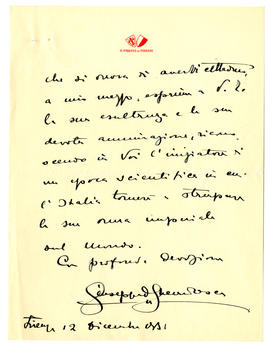 IL PODESTÀ DI FIRENZE
che si onora di averVi cittadino,
a mio mezzo, esprime a V. E.
la sua esultanza e la sua
devota ammirazione, ricono
scendo in Voi l'iniziatore di
un'epoca scientifica in cui
l'Italia tornerà a stampare
la sua orma imperiale
sul mondo.
Con profonda devozione
Giuseppe della Gherardesca
Firenze 12 Dicembre 1931